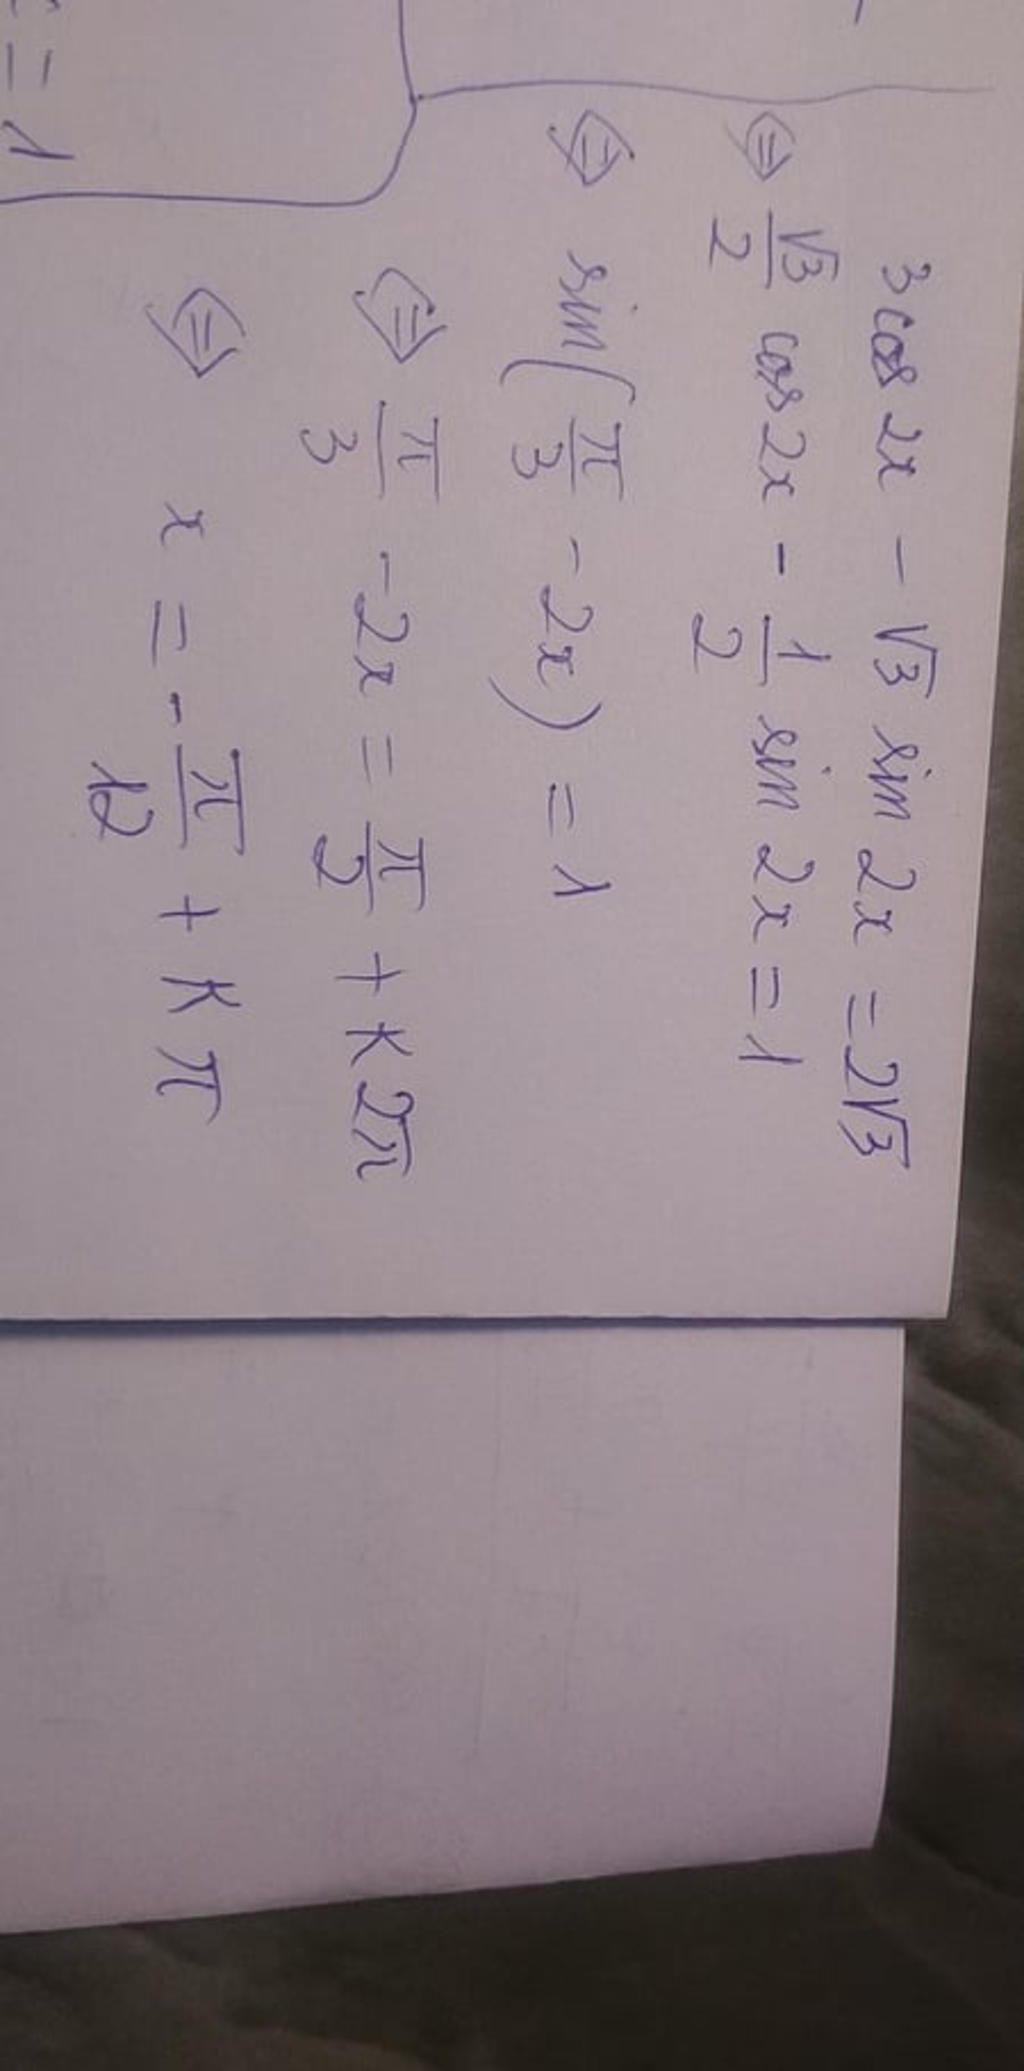 3 cos 2x - √3 sin 2x = 2√3
⇔ √3/2 cos 2x - 1/2 sin 2x = 1
⇔ sin(π/3 - 2x) = 1
⇔ π/3 - 2x = π/2 + K2π
⇔ x = -π/12 + Kπ
= 1